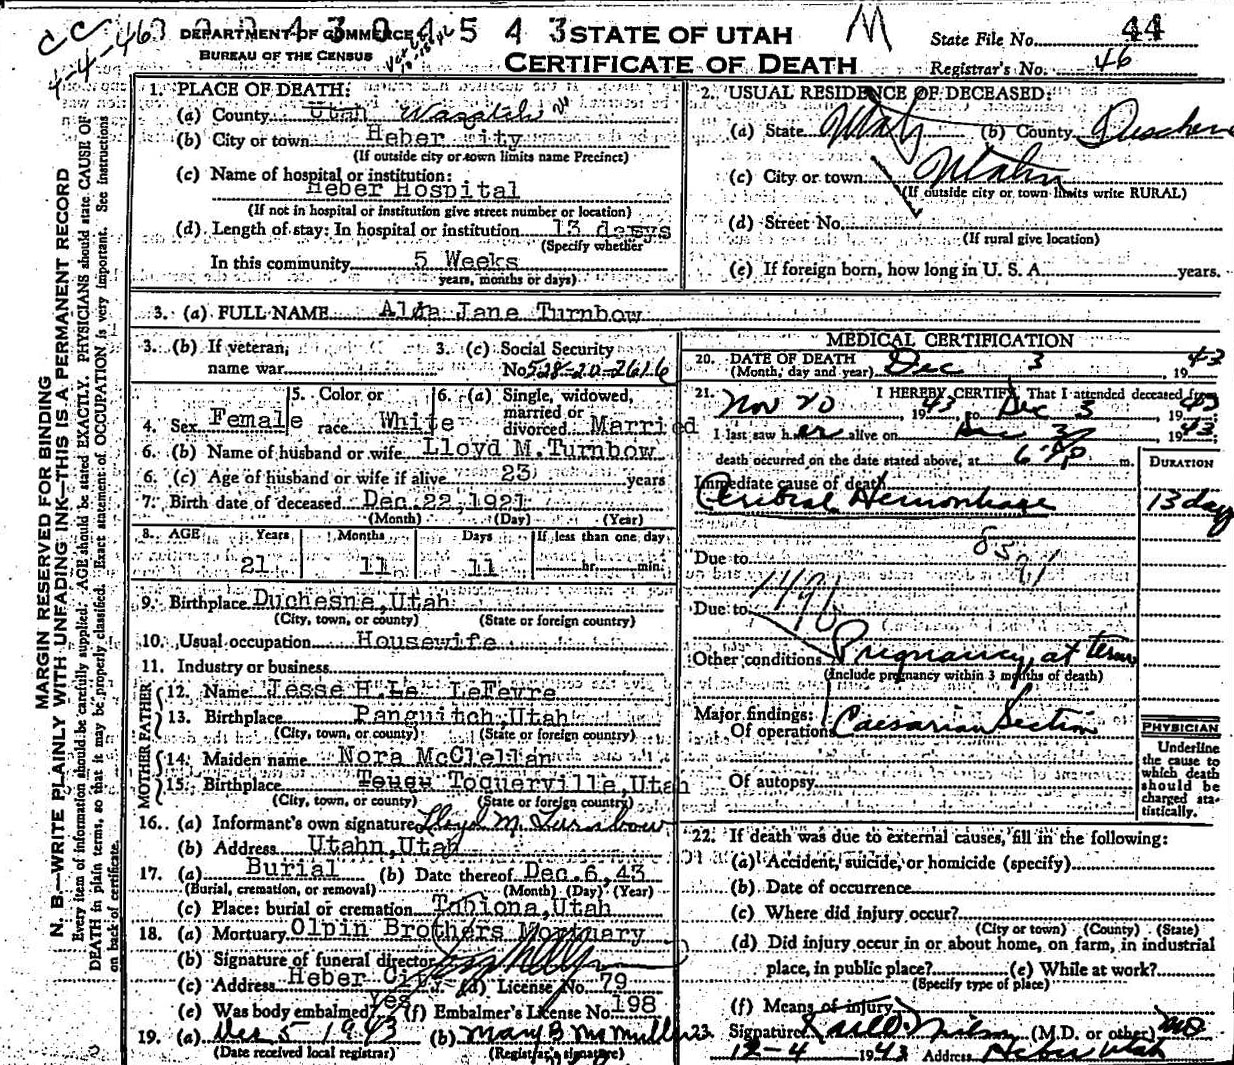 CC
4-4-46
DEPARTMENT OF COMMERCE
BUREAU OF THE CENSUS
4 3 0 4 5 4 3
STATE OF UTAH
CERTIFICATE OF DEATH
M
State File No. 44
Registrar's No. 46
MARGIN RESERVED FOR BINDING
N. B.—WRITE PLAINLY WITH UNFADING INK—THIS IS A PERMANENT RECORD
Every item of information should be carefully supplied. AGE should be stated EXACTLY. PHYSICIANS should state CAUSE OF
DEATH in plain terms, so that it may be properly classified. Exact statement of OCCUPATION is very important. See instructions
on back of certificate.
1. PLACE OF DEATH:
(a) County Utah Wasatch
(b) City or town Heber City
(If outside city or town limits name Precinct)
(c) Name of hospital or institution:
Heber Hospital
(If not in hospital or institution give street number or location)
(d) Length of stay: In hospital or institution 13 days
(Specify whether
In this community 5 Weeks
years, months or days)
2. USUAL RESIDENCE OF DECEASED:
(a) State Utah (b) County Duschene
(c) City or town Utahn
(If outside city or town limits write RURAL)
(d) Street No.
(If rural give location)
(e) If foreign born, how long in U. S. A. years.
3. (a) FULL NAME Jane Turnbow
3. (b) If veteran,
name war
3. (c) Social Security
No. 528-20-2616
4. Sex Female
5. Color or
race White
6. (a) Single, widowed,
married or
divorced Married
6. (b) Name of husband or wife Lloyd M. Turnbow
6. (c) Age of husband or wife if alive 23 years
7. Birth date of deceased Dec. 22, 1921
(Month) (Day) (Year)
8. AGE Years Months Days If less than one day
21 11 11 hr. min.
9. Birthplace Duchesne, Utah
(City, town, or county) (State or foreign country)
10. Usual occupation Housewife
11. Industry or business
FATHER
12. Name Jesse H. Le LeFevre
13. Birthplace Panguitch, Utah
(City, town, or county) (State or foreign country)
MOTHER
14. Maiden name Nora McClellan
15. Birthplace Toquerville, Utah
(City, town, or county) (State or foreign country)
16. (a) Informant's own signature Lloyd M Turnbow
(b) Address Utahn, Utah
17. (a) Burial (b) Date thereof Dec. 6, 43
(Burial, cremation, or removal) (Month) (Day) (Year)
(c) Place: burial or cremation Tabiona, Utah
18. (a) Mortuary Olpin Brothers Mortuary
(b) Signature of funeral director
(c) Address Heber City (d) License No. 79
(e) Was body embalmed? Yes (f) Embalmer's License No. 198
19. (a) Dec 5 1943 (b) Mary B McMullin
(Date received local registrar) (Registrar's signature)
MEDICAL CERTIFICATION
20. DATE OF DEATH
(Month, day and year) Dec 3, 1943
21. I HEREBY CERTIFY, That I attended deceased from
Nov 20 1943, to Dec 3 1943
I last saw her alive on Dec 3, 1943;
death occurred on the date stated above, at 6 P m.
DURATION
Immediate cause of death
Cerebral Hemorrhage 13 days
Due to
Due to
Other conditions Pregnancy at term
(Include pregnancy within 3 months of death)
Major findings:
Of operation Caesarian Section
Of autopsy
PHYSICIAN
Underline
the cause to
which death
should be
charged sta-
tistically.
22. If death was due to external causes, fill in the following:
(a) Accident, suicide, or homicide (specify)
(b) Date of occurrence
(c) Where did injury occur?
(City or town) (County) (State)
(d) Did injury occur in or about home, on farm, in industrial
place, in public place? (e) While at work?
(Specify type of place)
(f) Means of injury
23. Signature (M.D. or other) MD
12-4 1943 Address Heber Utah